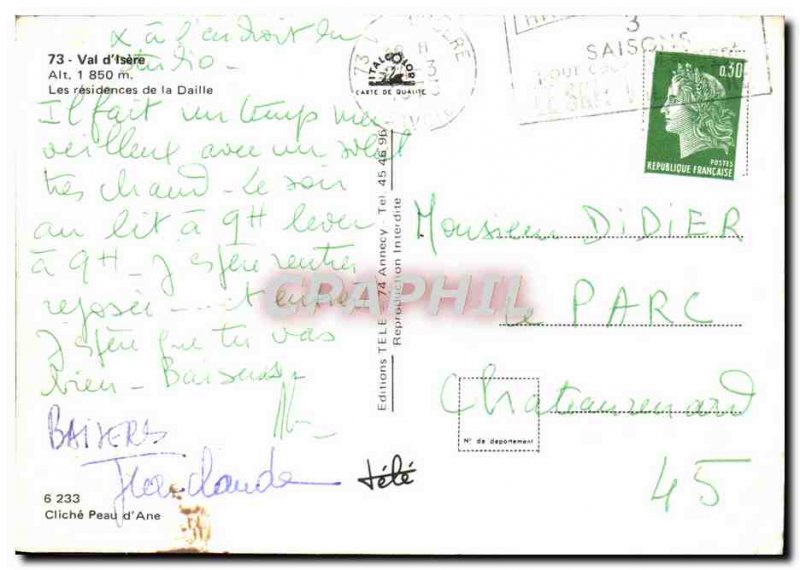 x à l'endroit du
studio -
73 - Val d'Isère
Alt. 1 850 m.
Les résidences de la Daille
Il fait un temps mer
veilleux avec un soleil
très chaud - le soir
au lit à 9H lever
à 9H - J'espère rentrer
reposée ... et
J'espère que tu vas
bien - Baisers
BAISERS
Jean Claude
6 233
Cliché Peau d'Ane
ITALCOLOR
CARTE DE QUALITÉ
Editions TELE - 74 Annecy - Tel. 45 46 96
Reproduction Interdite
télé
CRAPHIL
3
SAISONS
0,30
POSTES
REPUBLIQUE FRANÇAISE
Monsieur DIDIER
Le PARC
Chateaurenard
N° de département
45